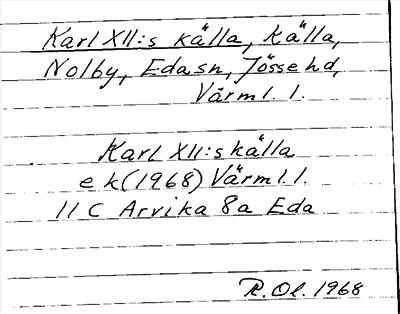 Karl XII:s källa, Källa,
Nolby, Edasn, Jösse hd,
Värml. l.
Karl XII:s källa
e k (1968) Värml. l.
11 C Arvika 8a Eda
R. Ol. 1968